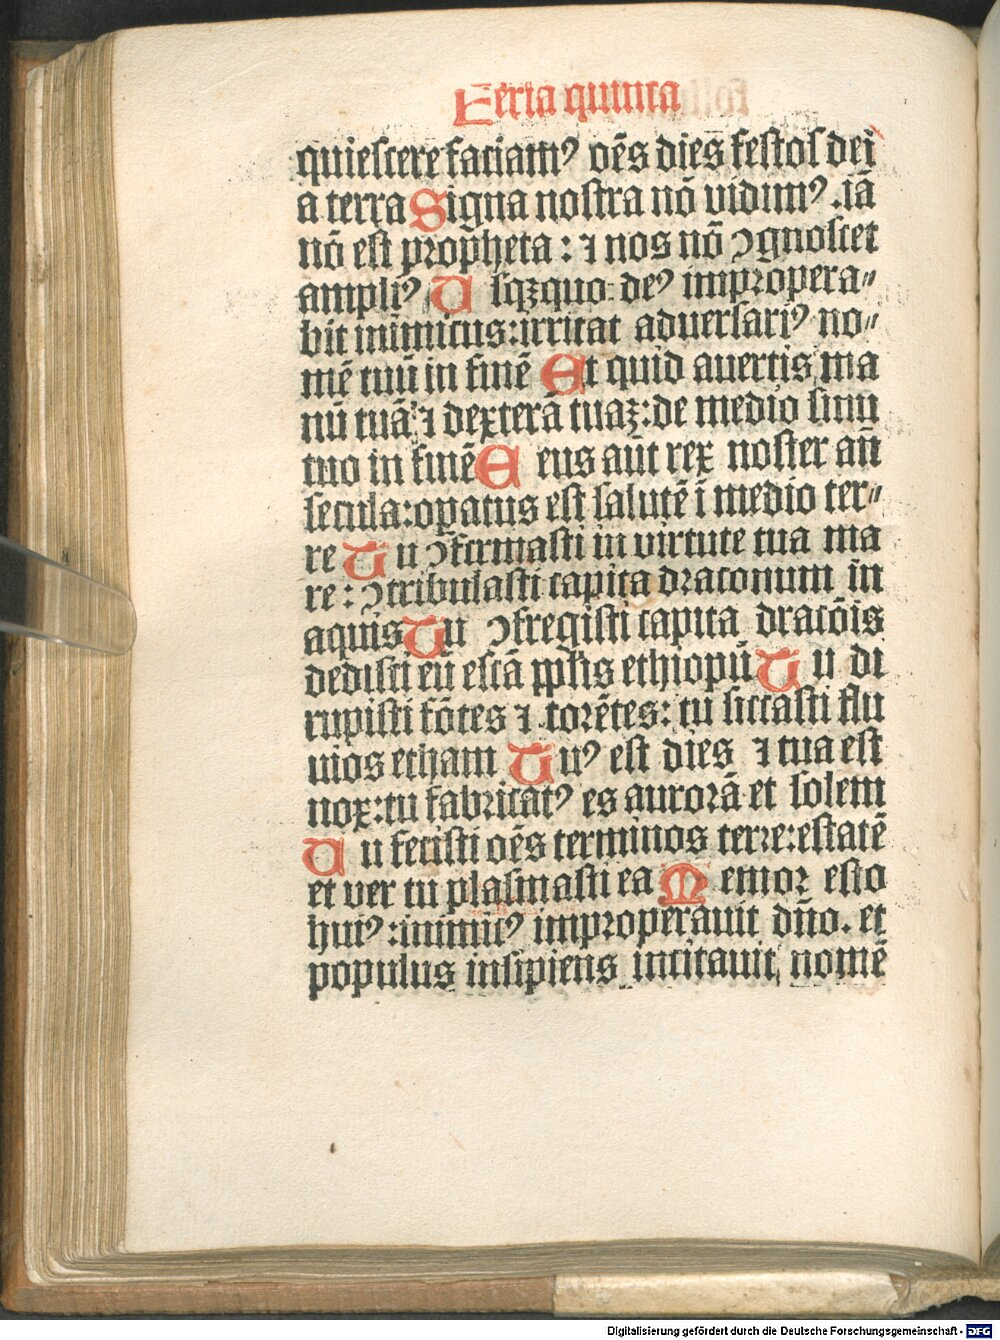 Feria quinta
quiescere faciamꝰ oēs dies festos dei
a terra Signa nostra nō vidimꝰ .iā
nō est propheta : ⁊ nos nō ꝯgnoscet
ampliꝰ U sqꝫquo deꝰ impropera⸗
bit inimicus:irritat aduersariꝰ no⸗
mē tuū in finē Et quid auertis ma
nū tuā ⁊ dexterā tuaꝫ:de medio sinu
tuo in finē E eus aūt rex noster añ
secula:opatus est salutē ī medio ter⸗
re Tu ꝯfirmasti in virtute tua ma
re : ꝯtribulasti capita draconum in
aquis Tu ꝯfregisti capita dracōis
dedisti eū escā pplis ethiopū Tu di
rupisti fōtes ⁊ torētes: tu siccasti flu
uios etham Tuꝰ est dies ⁊ tua est
nox:tu fabricatꝰ es aurorā et solem
Tu fecisti oēs terminos terre:estatē
et ver tu plasmasti ea Memor esto
huiꝰ :inimicꝰ improperauit dño. et
populus insipiens incitauit nomē
Digitalisierung gefördert durch die Deutsche Forschungsgemeinschaft - DFG